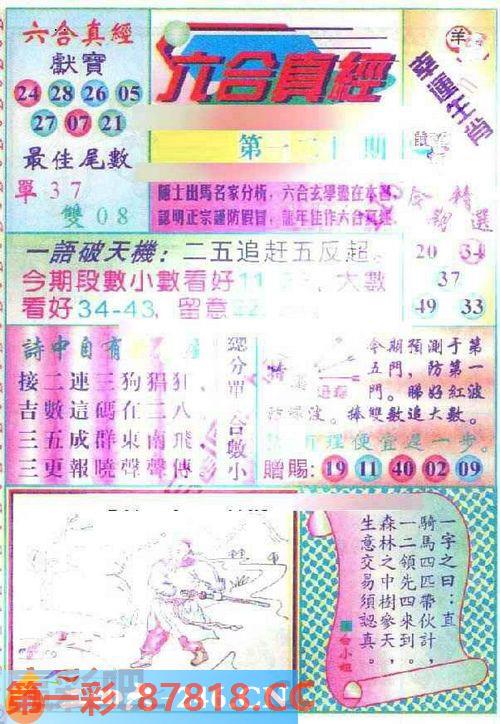 六合真經
獻寶
24 28 26 05
27 07 21
最佳尾數
單 37
雙 08
六合真經
羊
幸運生肖
鼠
第一二 期
隱士出馬名家分析，六合玄學盡在本
認明正宗謹防假冒，龍年佳作六合真經
今期精選
20 34
37
49 33
一語破天機：二五追赶五反超。
今期段數小數看好11 、大數
看好34-43，留意
詩中自有
接二連三狗猖狂、
吉數這碼在三八、
三五成群東南飛
三更報曉聲聲傳
總分單、合數小
今期預測于第
五門，防第一
門。睇好紅波
防綠波。捧雙數追大數。
行理便宜進一步。
贈賜：19 11 40 02 09
一字之曰：直
騎馬四匹帶伙計，
一二領先四來到。
森林之中樹參天，
生意交易須認真。
白小姐
第一彩 87818.CC
246.CN